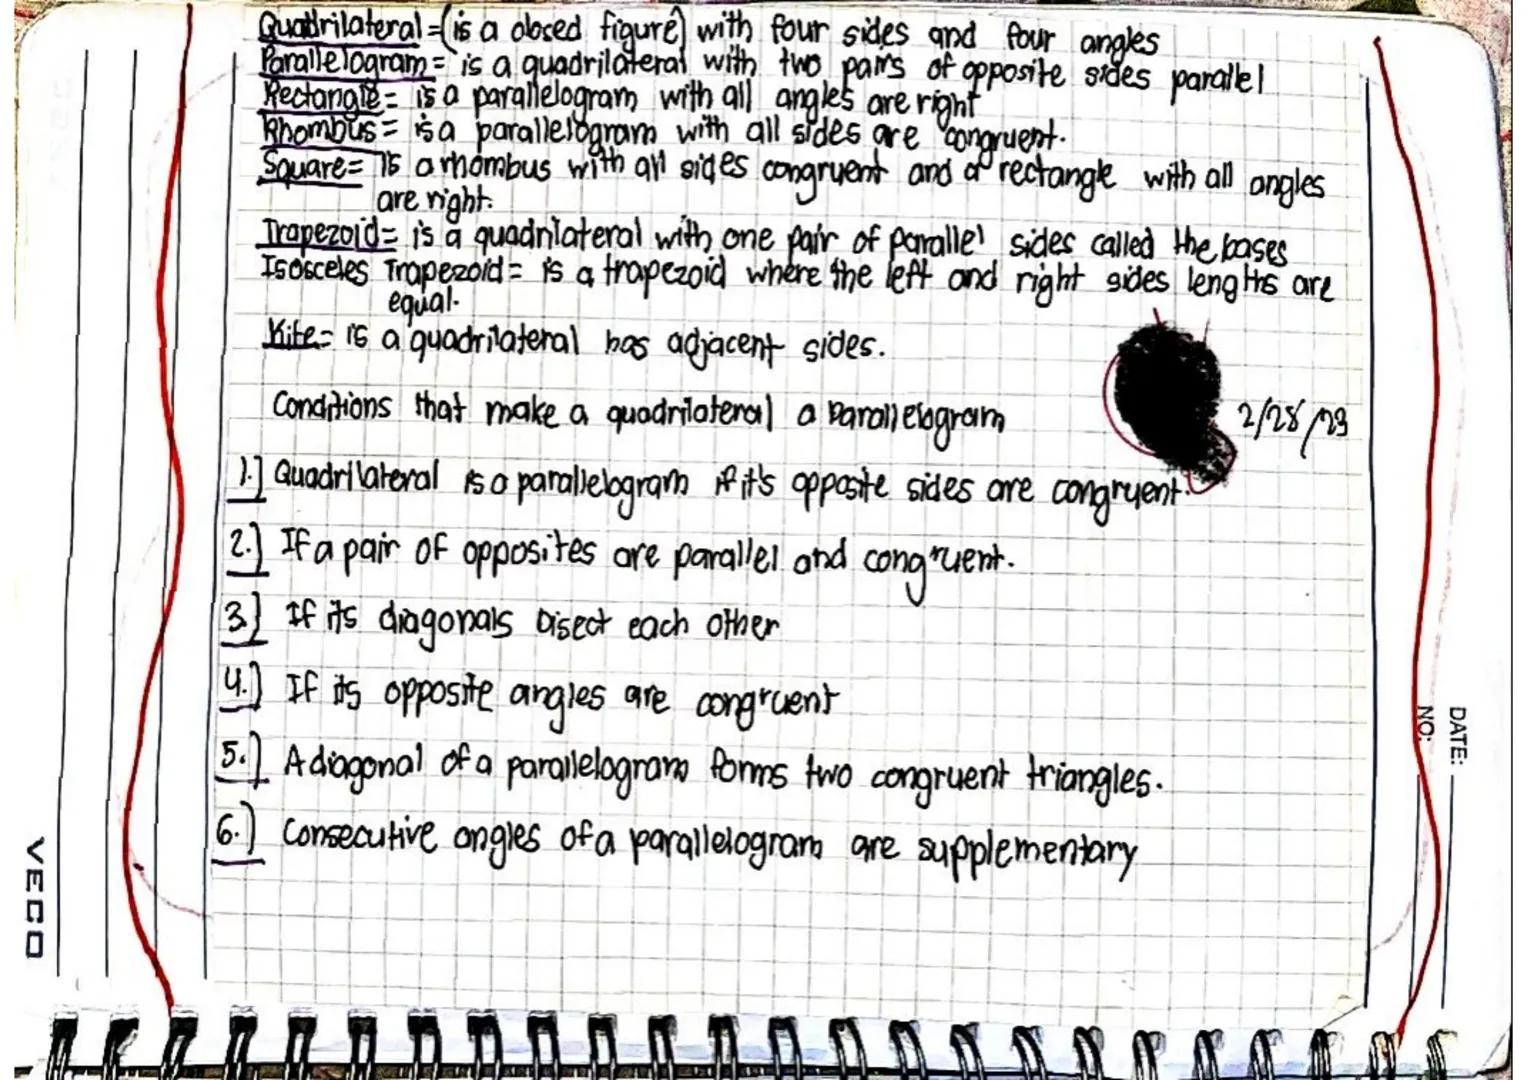 Quadrilateral = (is a closed figure) with four sides and four angles
Parallelogram = is a quadrilateral with two pairs of opposite sides parallel
Rectangle = is a parallelogram with all angles are right
Rhombus = is a parallelogram with all sides are congruent.
Square = is a rhombus with all sides congruent and a rectangle with all angles
are right.
Trapezoid = is a quadrilateral with one pair of parallel sides called the bases
Isosceles Trapezoid = is a trapezoid where the left and right sides lengths are
equal.
Kite = is a quadrilateral has adjacent sides.
Conditions that make a quadrilateral a parallelogram
2/28/23
1.] Quadrilateral is a parallelogram if it's opposite sides are congruent.
2.] If a pair of opposites are parallel and congruent.
3.] If its diagonals bisect each other
4.] If its opposite angles are congruent
5.] A diagonal of a parallelogram forms two congruent triangles.
6.] Consecutive angles of a parallelogram are supplementary
DATE:
NO:
VECO